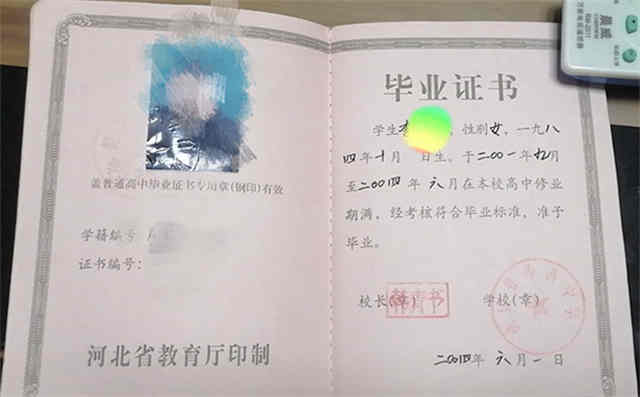 盖普通高中毕业证书专用章(钢印)有效
学籍编号
证书编号:
河北省教育厅印制
毕业证书
学生李 , 性别女, 一九八
四年十月 日生, 于二00一年九月
至二00四年六月在本校高中修业
期满, 经考核符合毕业标准, 准予
毕业。
校长(章) 学校(章)
二00四年六月一日
晨威